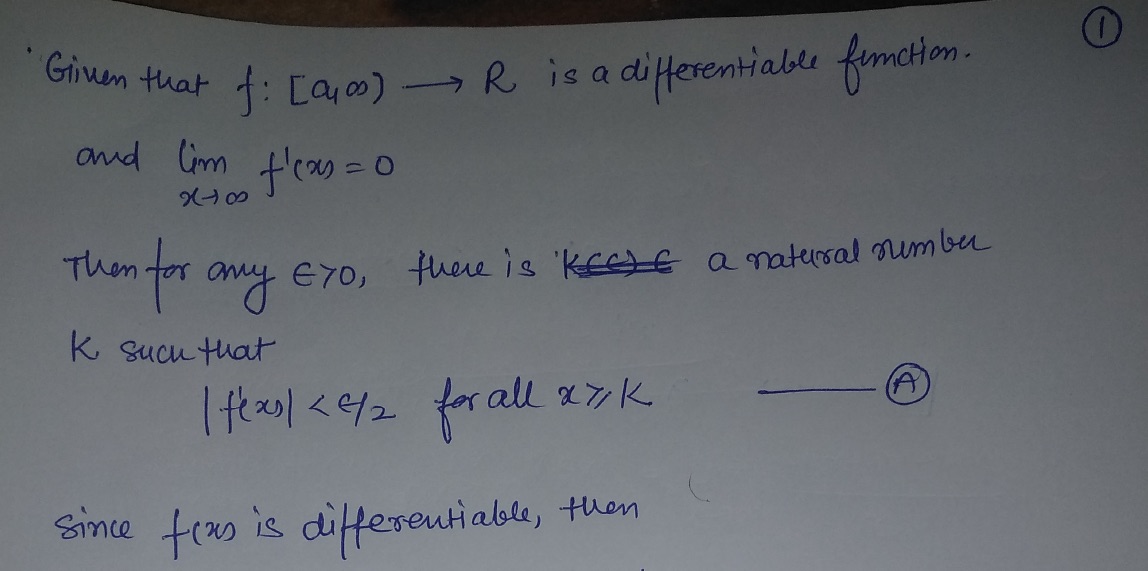 ①
Given that f: [a,∞) → R is a differentiable function.
and lim f'(x) = 0
x→∞
Then for any ∈>0, there is a natural number
K such that
|f'(x)| < ∈/2 for all x ≥ K —— Ⓐ
Since f(x) is differentiable, then